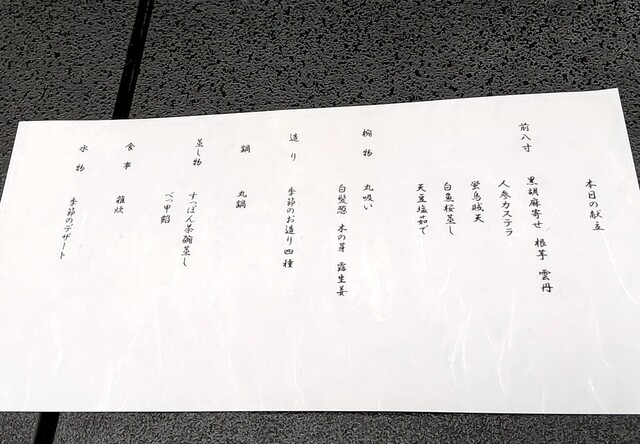 本日の献立
前八寸
黒胡麻寄せ 根芋 雲丹
人参カステラ
蛍烏賊天
白魚桜蒸し
天豆塩茹で
椀物 丸吸い
白髪葱 木の芽 露生姜
造り 季節のお造り四種
鍋 丸鍋
蒸し物 すっぽん茶碗蒸し
べっ甲餡
食事 雑炊
水物 季節のデザート